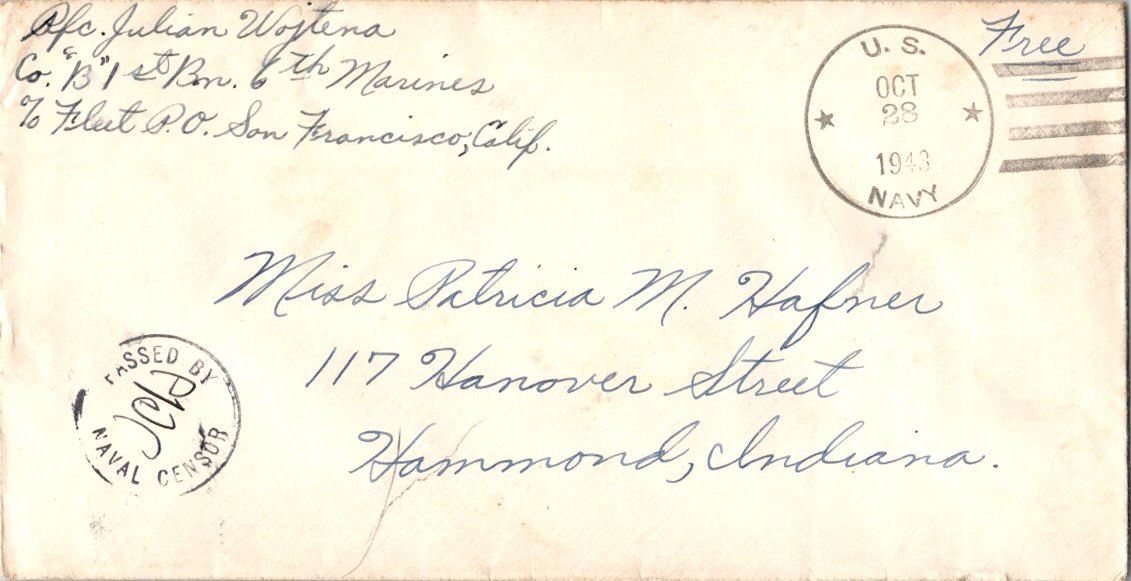 Pfc. Julian Wojtena
Co. "B" 1st Bn. 6th Marines
℅ Fleet P.O. San Francisco, Calif.
Free
U. S.
OCT
28
1943
NAVY
Miss Patricia M. Hafner
117 Hanover Street
Hammond, Indiana.
PASSED BY
NAVAL CENSOR